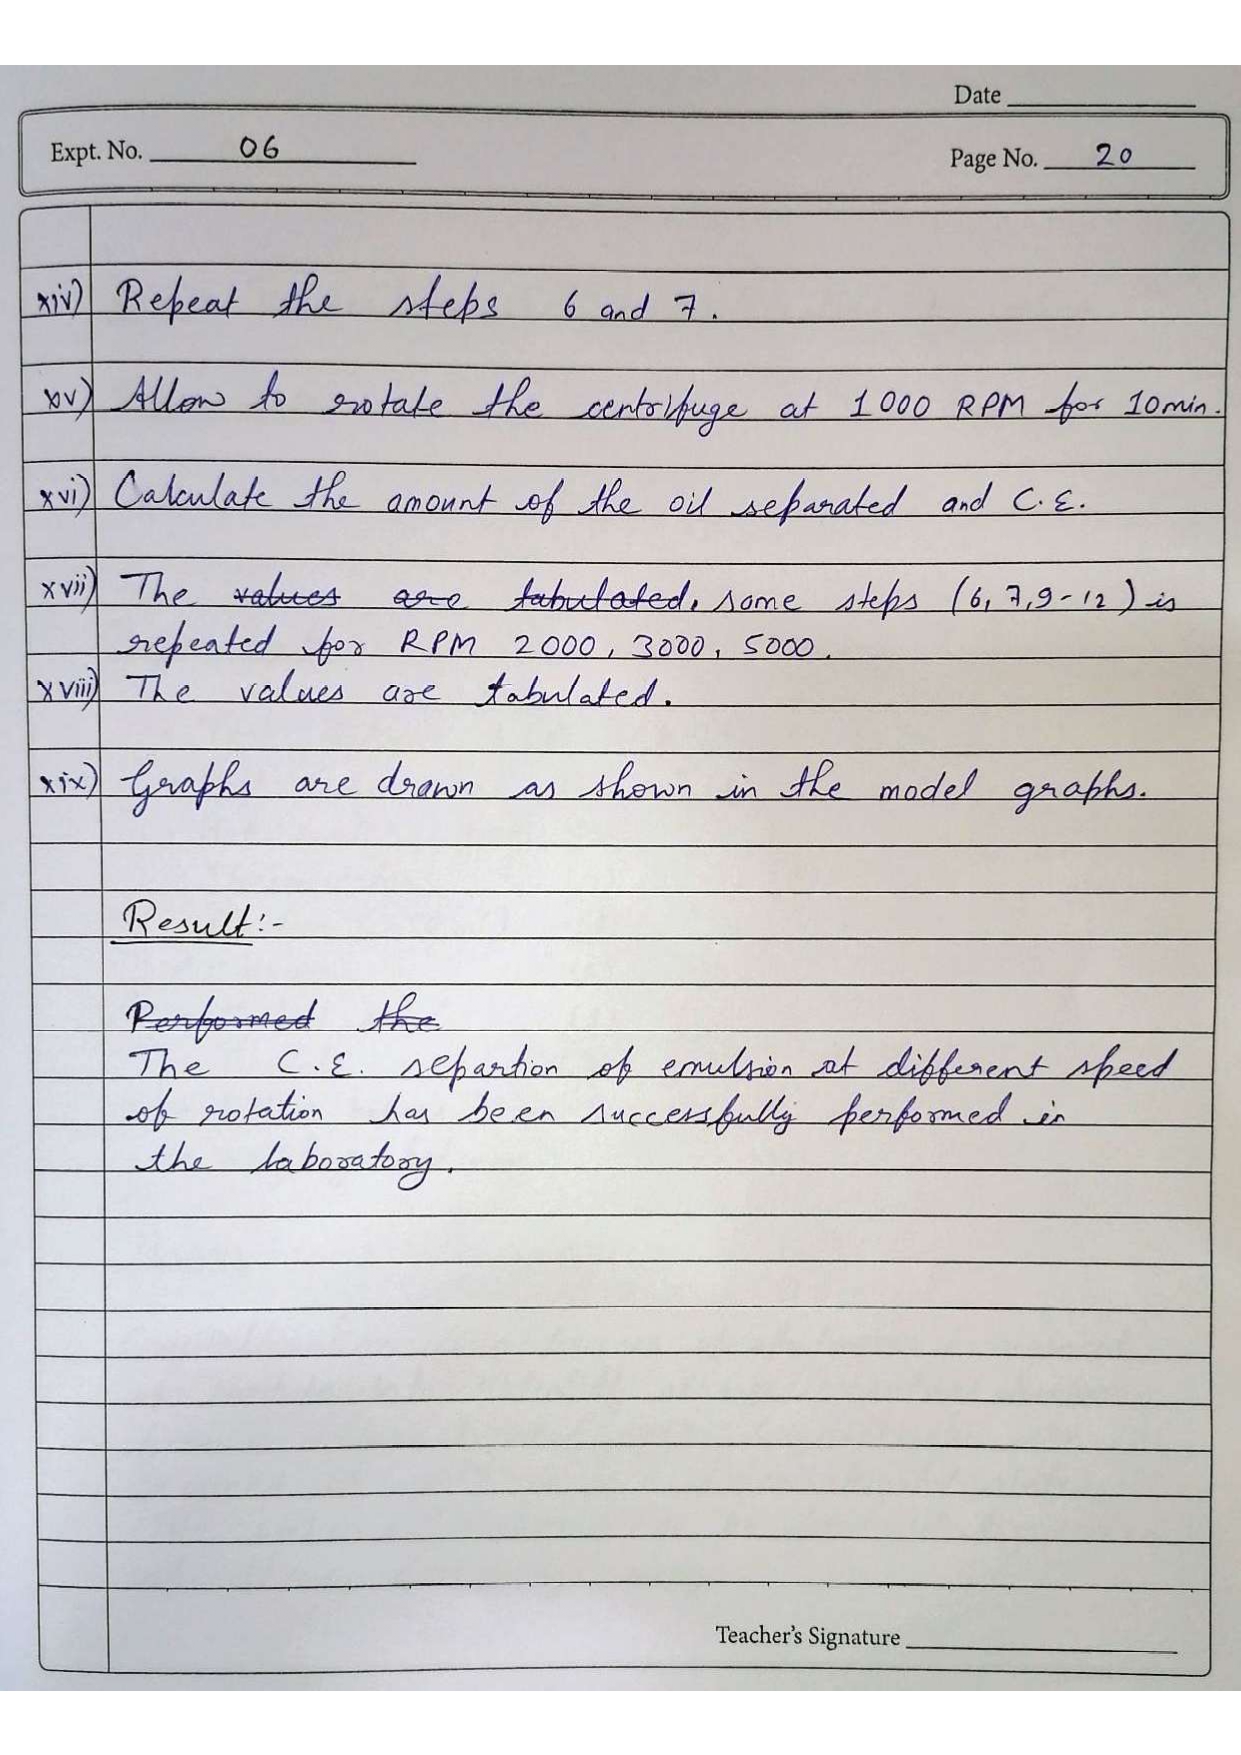 Date
Expt. No. 06
Page No. 20
xiv) Repeat the steps 6 and 7.
xv) Allow to rotate the centrifuge at 1000 RPM for 10min.
xvi) Calculate the amount of the oil separated and C.E.
xvii) The values are tabulated. same steps (6, 7, 9-12) is
repeated for RPM 2000, 3000, 5000.
xviii) The values are tabulated.
xix) Graphs are drawn as shown in the model graphs.
Result:-
Performed the
The C.E. separtion of emulsion at different speed
of rotation has been successfully performed in
the laboratory.
Teacher's Signature